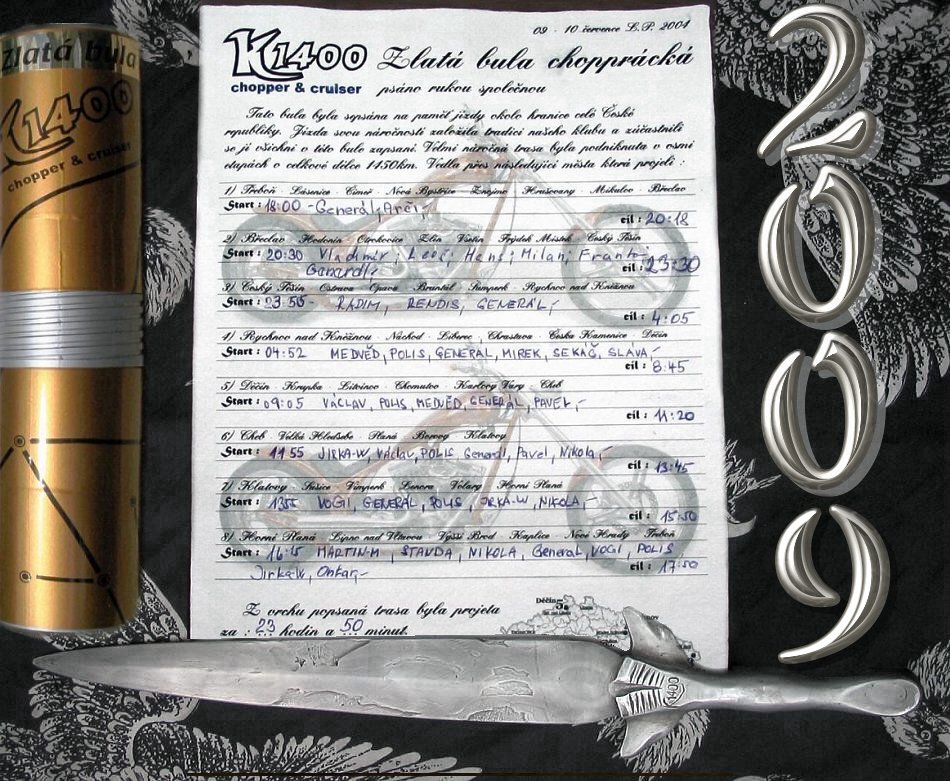 Zlatá bula
K1400
chopper & cruiser
09 - 10 července L.P. 2004
K1400 Zlatá bula chopprácká
chopper & cruiser psáno rukou společnou
Tato bula byla sepsána na paměť jízdy okolo hranice celé České
republiky. Jízda svou náročností založila tradici našeho klubu a zúčastnili
se jí všichni v této bule zapsaní. Velmi náročná trasa byla podniknuta v osmi
etapách o celkové délce 1450km. Vedla přes následující místa která projeli :
1) Třeboň Lásenice Číměř Nová Bystřice Znojmo Hrušovany Mikulov Břeclav
Start : 18:00 - Generál, Arči,-
cíl : 20:18
2) Břeclav Hodonín Otrokovice Zlín Vsetín Frýdek Místek Český Těšín
Start : 20:30 Vladimír, Milan, Franta
Generál,-
cíl : 23:30
3) Český Těšín Ostrava Opava Bruntál Šumperk Rychnov nad Kněžnou
Start : 23:50 - RADIM, RENDIS, GENERÁL,-
cíl : 4:05
4) Rychnov nad Kněžnou Náchod Liberec Chrastava Česká Kamenice Děčín
Start : 04:52 MEDVĚD, POLIS, GENERÁL, MIREK, SEKÁČ, SLÁVA,-
cíl : 8:45
5) Děčín Krupka Litvínov Chomutov Karlovy Vary Cheb
Start : 09:05 VÁCLAV, POLIS, MEDVĚD, GENERÁL, PAVEL,-
cíl : 11:20
6) Cheb Velká Hleďsebe Planá Borovy Klatovy
Start : 11 55 JIRKA-W, Václav, POLIS, Generál, Pavel, Nikola,-
cíl : 13:45
7) Klatovy Sušice Vimperk Lenora Volary Horní Planá
Start : 1355 VOGI, GENERÁL, POLIS, JIRKA-W, NIKOLA,-
cíl : 15:50
8) Horní Planá Lipno nad Vltavou Vyšší Brod Kaplice Nové Hrady Třeboň
Start : 16:15 MARTIN-M, STANDA, NIKOLA, Generál, VOGI, POLIS
Jirka-W, Onkar,-
cíl : 17:50
Z vrchu popsaná trasa byla projeta
za : 23 hodin a 50 minut.
Děčín
5.
K1400
2009